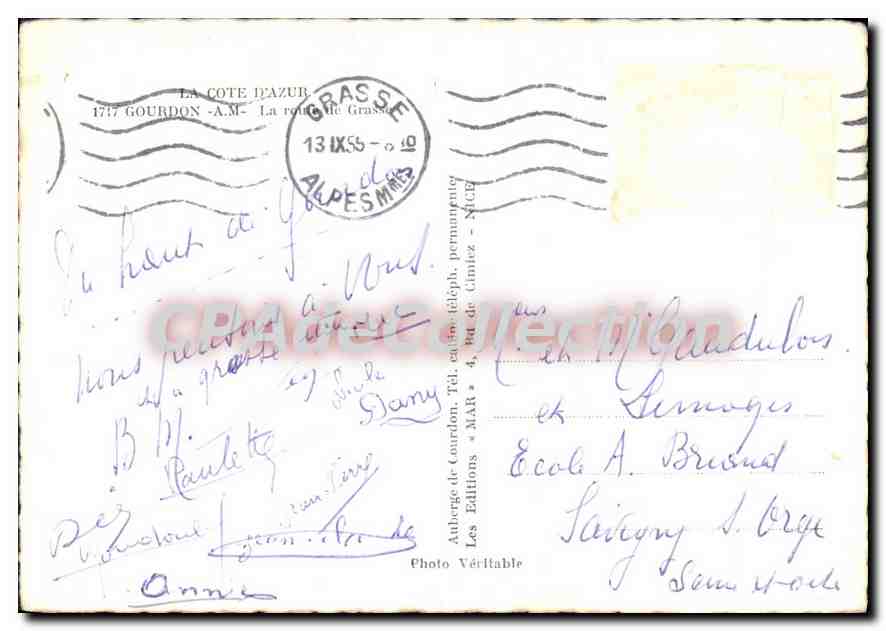 LA COTE D'AZUR
1717 GOURDON -A.M- La route de Grasse
GRASSE
13 IX 55
ALPES MMES
Du haut de Gourdon
nous pensons à vous.
grosse
B M.
Paulette
Dany
Jean-Pierre
Anny
Auberge de Courdon. Tél. cabine téléph. permanente
Les Editions « MAR » 4, Bd de Cimiez - NICE
Photo Véritable
CPArteCollection
et M Gaudubois
et Limoges
Ecole A. Briand
Savigny S. Orge
Seine et Oise